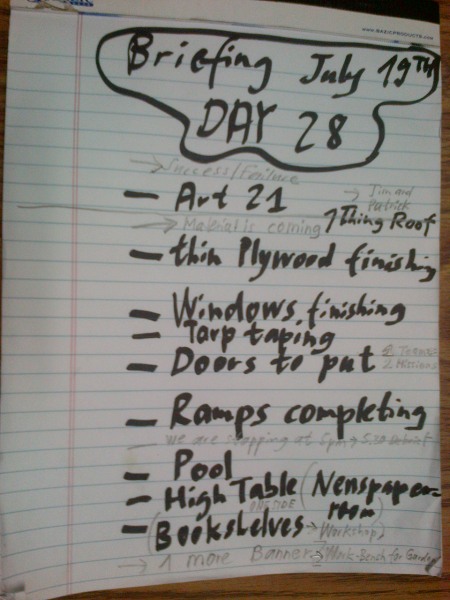 www.BAZICPRODUCTS.com
Briefing July 19TH
DAY 28
→ Success/Failure
- Art 21 → Jim and Patrick
→ Material is coming 1 Thing Roof
- thin Plywood finishing
- Windows finishing
- Tarp taping
- Doors to put 2 Teams 2 Missions
- Ramps completing
- We are stopping at 5pm → 5.30 Debrief
- Pool
- High Table (Nenspaper-
room)
- (Bookshelves → Workshop)
→ 1 more Banner → Work-Bench for Garden